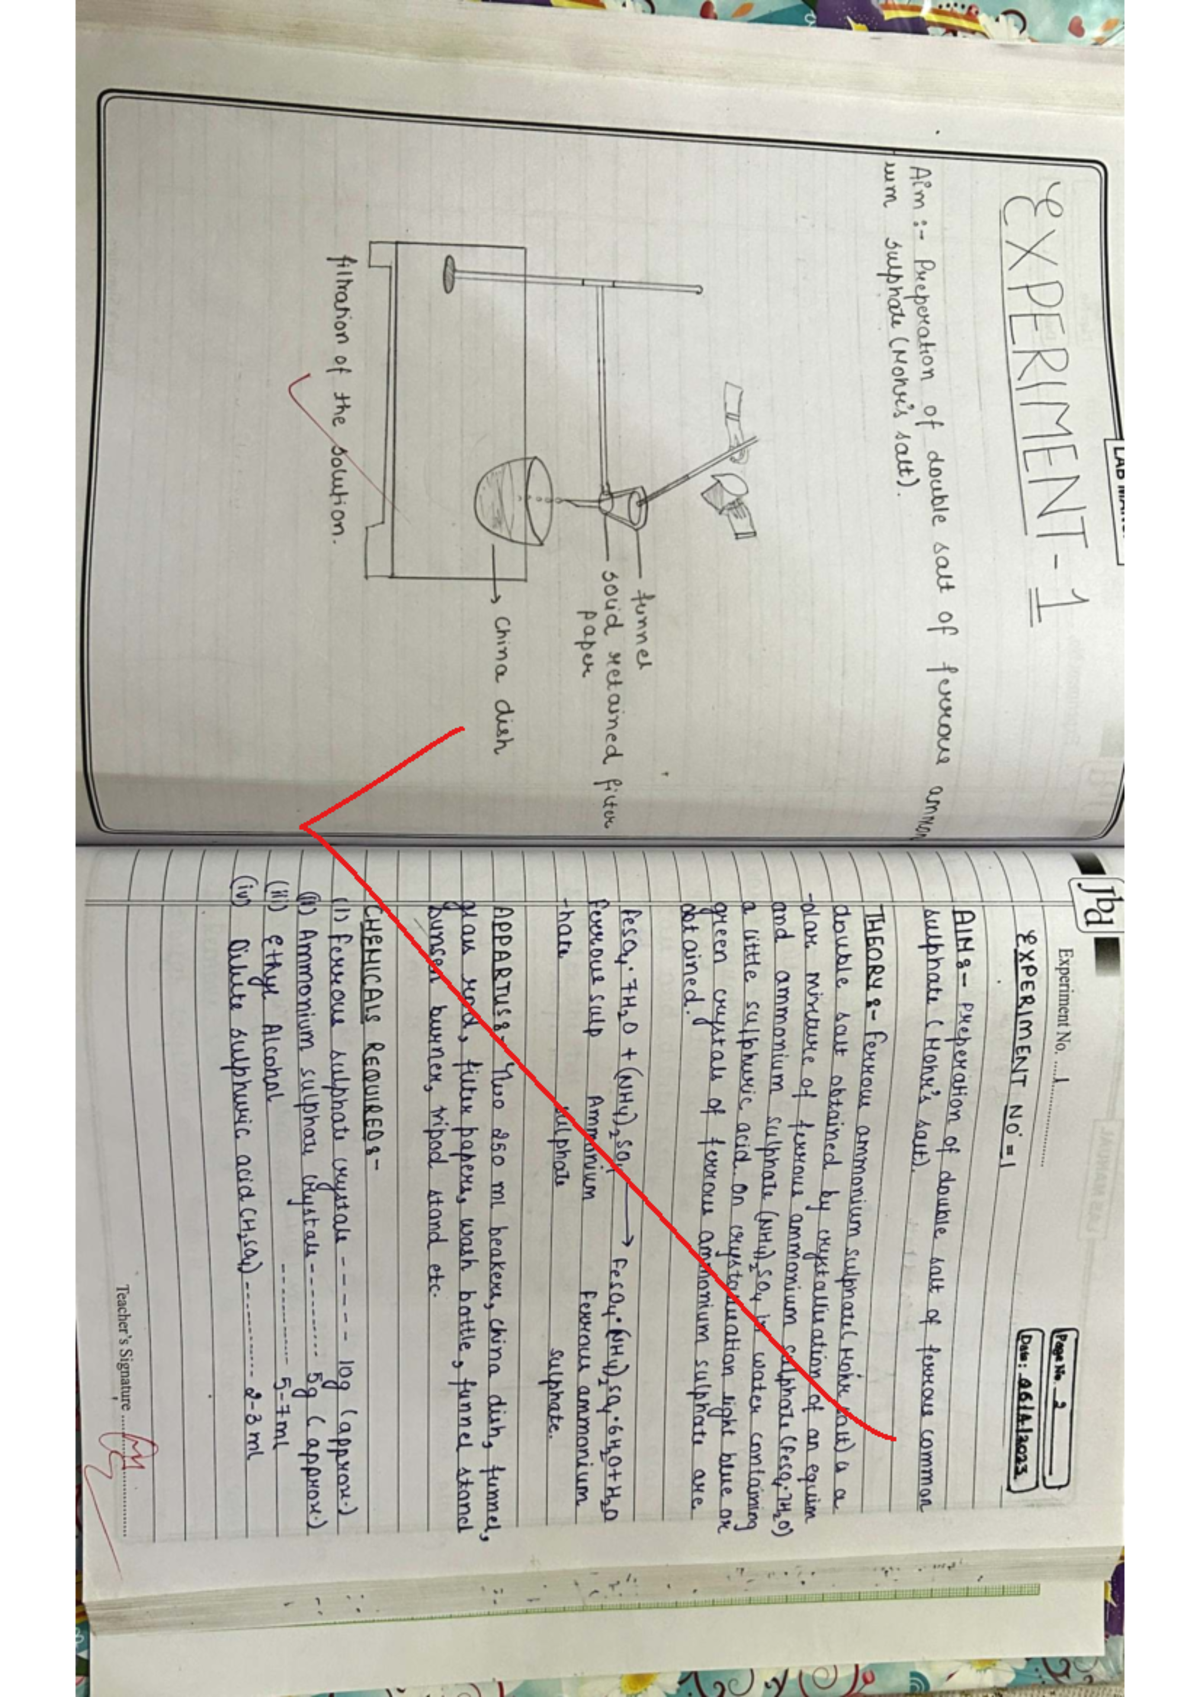 LAB
EXPERIMENT-1
Aim :- Preperation of double salt of ferrous ammon
ium sulphate (Mohr's salt).
funnel
solid retained filter
paper
China dish
filtration of the solution.
Jbd
Experiment No. ....1
Page No. 2
Date: 26/4/2023
EXPERIMENT NO = 1
AIM :- Preperation of double salt of ferrous common
sulphate (Mohr's salt).
THEORY :- Ferrous ammonium sulphate (Mohr salt) is a
double salt obtained by crystallisation of an equim
-olar mixture of ferrous ammonium sulphate (FeSO4.7H2O)
and ammonium sulphate (NH4)2SO4 in water containing
a little sulphuric acid. On crystallisation light blue or
green crystals of ferrous ammonium sulphate are
obtained.
FeSO4.7H2O + (NH4)2SO4 → FeSO4.(NH4)2SO4.6H2O+H2O
Ferrous sulp Ammonium Ferrous ammonium
-hate sulphate sulphate.
APPARTUS :- Two 250 ml beakers, china dish, funnel,
glass rod, filter papers, wash bottle, funnel stand
bunsen burner, tripod stand etc.
CHEMICALS REQUIRED :-
(i) Ferrous sulphate crystals ----- 10g (approx.)
(ii) Ammonium sulphate crystals --------- 5g (approx.)
(iii) Ethyl Alcohol ---------- 5-7ml
(iv) Dilute sulphuric acid (H2SO4) ------------ 2-3 ml
Teacher's Signature ....................